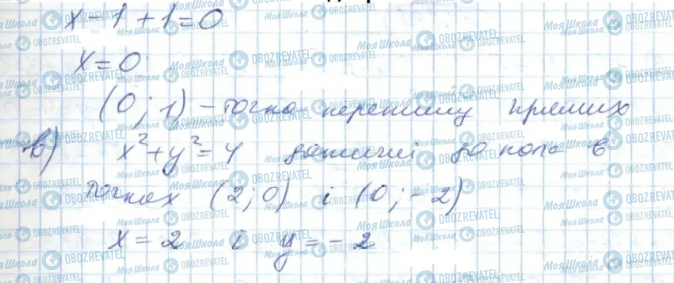 x - 1 + 1 = 0
x = 0
(0; 1) - точка перетину прямих
в) x² + y² = 4 дотичні до кола в
точках (2; 0) і (0; -2)
x = 2 і y = -2